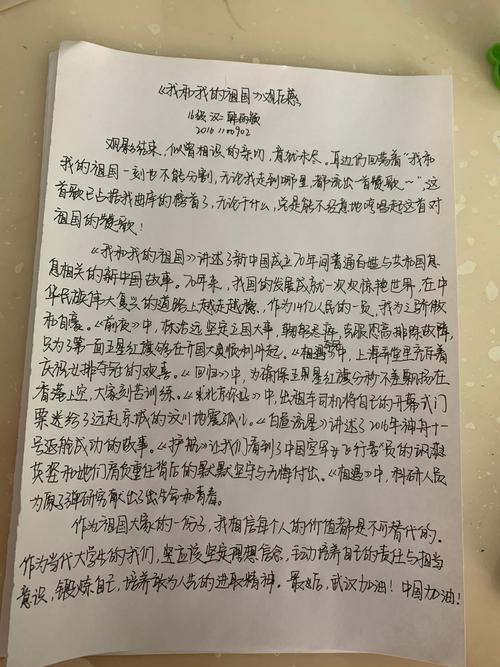 《我和我的祖国》观后感
16级 汉二 韩
2016110902
观影结束，似曾相识的亲切，意犹未尽。耳边仍回荡着“我和
我的祖国一刻也不能分割，无论我走到哪里，都流出一首赞歌～”，这
首歌已占据我曲库的榜首了，无论干什么，总是能不经意地哼唱起这首对
祖国的赞歌！
《我和我的祖国》讲述了新中国成立70年间普通百姓与共和国息
息相关的新中国故事。70年来，我国的发展成就一次次惊艳世界，在中
华民族伟大复兴的道路上越走越稳，作为14亿人民的一员，我为之骄傲
和自豪。《前夜》中，林治远坚定立国大事，克服恐高排除故障，
只为了第一面五星红旗能够在开国大典顺利升起。《夺冠》中，上海弄堂里充斥着
庆祝女排夺冠的欢喜。《回归》中，为确保五星红旗分秒不差飘扬在
香港上空，大家刻苦训练。《北京你好》中，出租车司机将自己的开幕式门
票送给了远赴京城的汶川地震孤儿。《白昼流星》讲述了2016年神舟十一
号返航成功的故事。《护航》让我们看到了中国空军女飞行员的飒爽
英姿和她们肩负重任背后的默默坚守与无悔付出。《相遇》中，科研人员
为原子弹研究献出了生命和青春。
作为祖国大家的一份子，我相信每个人的价值都是不可替代的。
作为当代大学生的我们，更应该坚定理想信念，主动培养自己的责任与担当
意识，锻炼自己，培养敢为人先的进取精神。最后，武汉加油！中国加油！